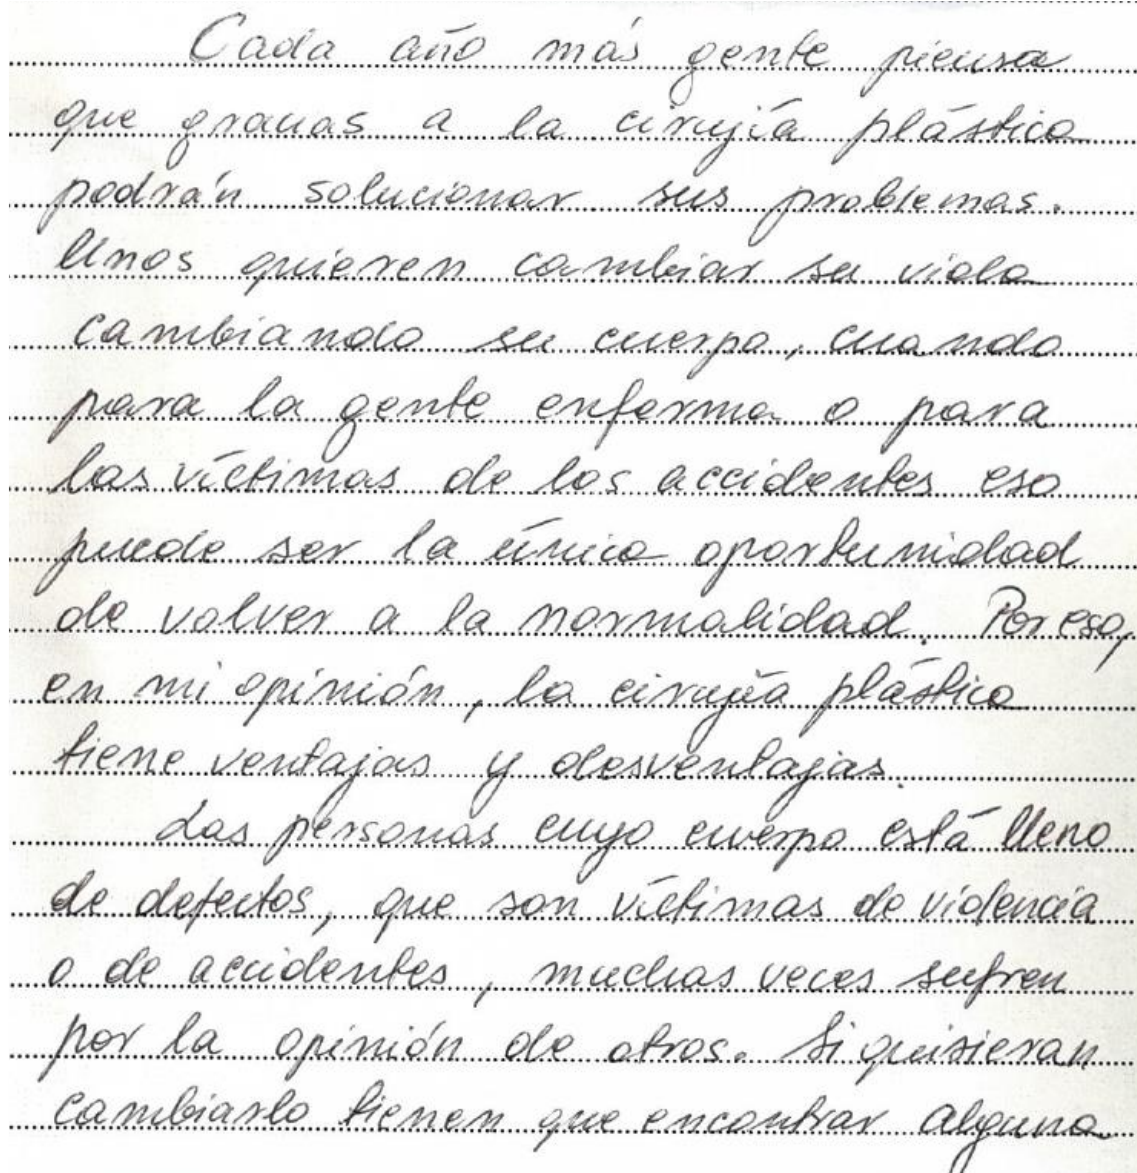 Cada año más gente piensa
que gracias a la cirujía plástica
podrán solucionar sus problemas.
Unos quieren cambiar su vida
cambiando su cuerpo, cuando
para la gente enferma o para
las víctimas de los accidentes eso
puede ser la única oportunidad
de volver a la normalidad. Por eso,
en mi opinión, la cirugía plástica
tiene ventajas y desventajas.
Las personas cuyo cuerpo está lleno
de defectos, que son víctimas de violencia
o de accidentes, muchas veces sufren
por la opinión de otros. Si quisieran
cambiarlo tienen que encontrar alguna